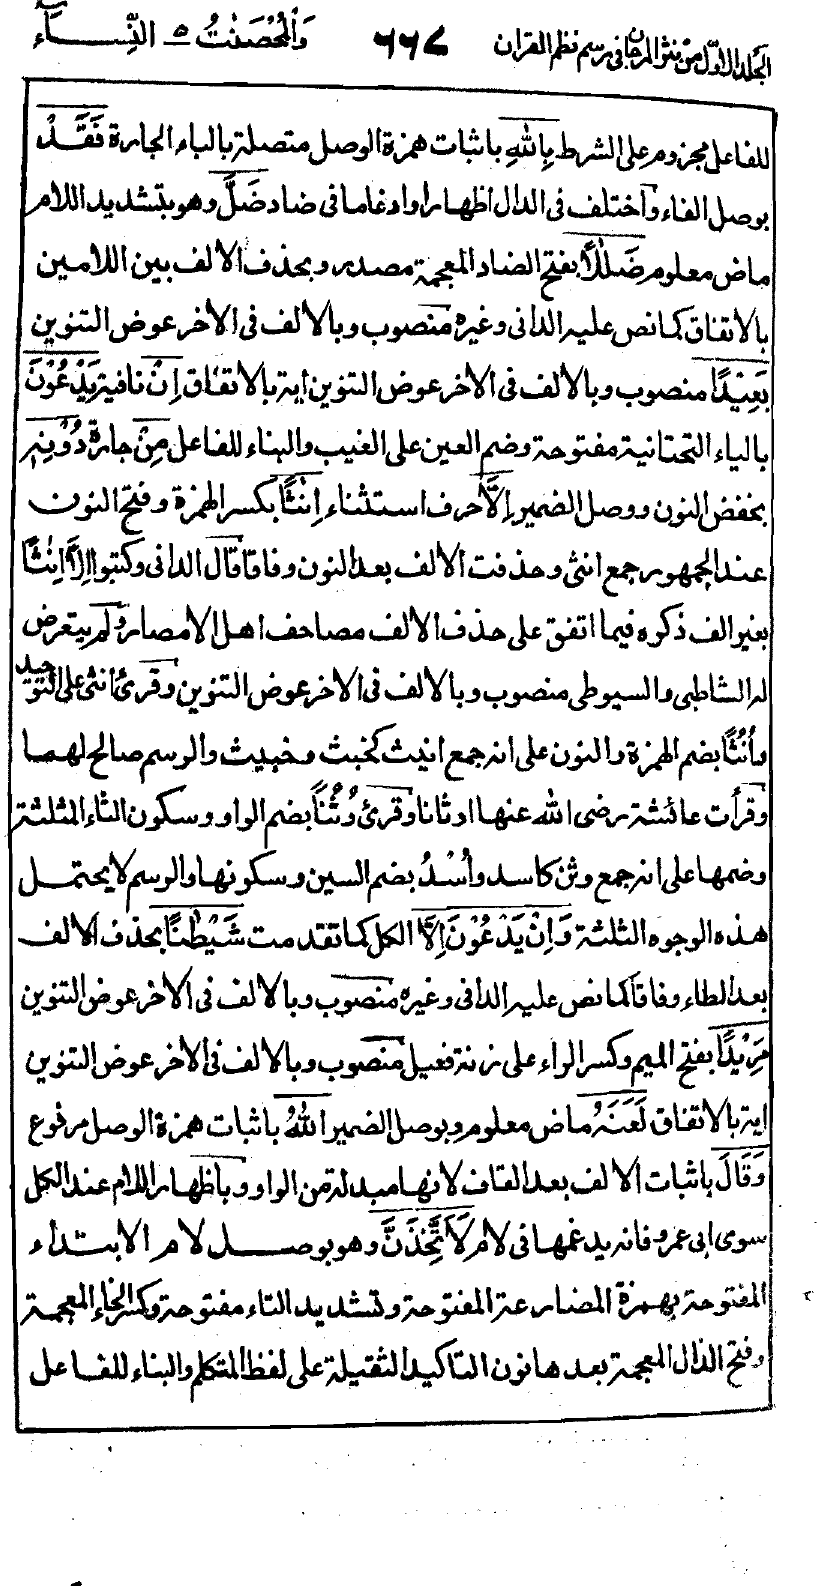 الجلد الاول من نثر المرجان فى رسم نظم القران ٦٦٧ وَالْمُحْصَنٰتُ ٥ النِّسَآء
للفاعل مجزوم على الشرط بِاللّٰهِ باثبات همزة الوصل متصلة بالباء الجارة فَقَدْ
بوصل الفاء واختلف فى الدال اظهارا وادغاما فى ضاد ضَلَّ وهو بتشديد اللام
ماض معلوم ضَلٰلًا بفتح الضاد المعجمة مصدر وبحذف الالف بين اللامين
بالاتفاق كما نص عليه الدانى وغيره منصوب وبالالف فى الاخر عوض التنوين
بَعِيْدًا منصوب وبالالف فى الاخر عوض التنوين اية بالاتفاق اِنْ نافية يَدْعُوْنَ
بالياء التحتانية مفتوحة وضم العين على الغيب والبناء للفاعل مِنْ جارة دُوْنِهٖ
بخفض النون ووصل الضمير اِلَّا حرف استثناء اِنٰثًا بكسر الهمزة وفتح النون
عند الجمهور جمع انثى وحذفت الالف بعد النون وفاقا قال الدانى وكتبوا اِلَّا اِنٰثًا
بغير الف ذكره فيما اتفق على حذف الالف مصاحف اهل الامصار ولم يتعرض
له الشاطبى والسيوطى منصوب وبالالف فى الاخر عوض التنوين وقرئ انثى على التوحيد
وأُنُثًا بضم الهمزة والنون على انه جمع انيث كخبث وخبيث والرسم صالح لهما
وقرأت عائشة رضى الله عنها اوثانا وقرئ وُثُنًا بضم الواو وسكون الثاء المثلثة
وضمها على انه جمع وثن كاسد وأُسْدٌ بضم السين وسكونها والرسم لا يحتمل
هذه الوجوه الثلثة وَاِنْ يَدْعُوْنَ اِلَّا الكل كما تقدمت شَيْطٰنًا بحذف الالف
بعد الطاء وفاقا كما نص عليه الدانى وغيره منصوب وبالالف فى الاخر عوض التنوين
مَرِيْدًا بفتح الميم وكسر الراء على زنة فعيل منصوب وبالالف فى الاخر عوض التنوين
اية بالاتفاق لَعَنَهُ ماض معلوم وبوصل الضمير اللّٰهُ باثبات همزة الوصل مرفوع
وَقَالَ باثبات الالف بعد القاف لانها مبدلة من الواو وباظهار اللام عند الكل
سوى ابى عمرو فانه يدغمها فى لام لَاَتَّخِذَنَّ وهو بوصل لام الابتداء
المفتوحة بهمزة المضارعة المفتوحة وتشديد التاء مفتوحة وكسر الخاء المعجمة
وفتح الذال المعجمة بعدها نون التاكيد الثقيلة على لفظ المتكلم والبناء للفاعل